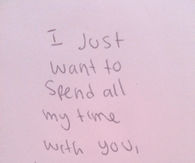 I Just
want to
Spend all
my time
with you,